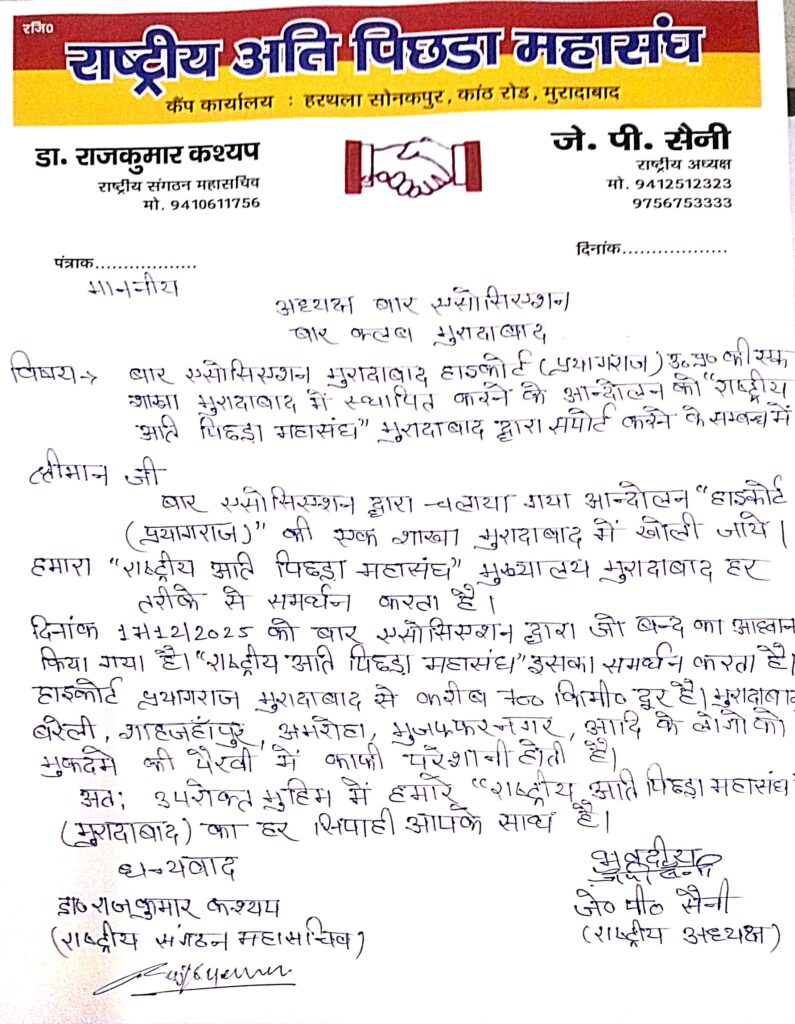 रजि०
राष्ट्रीय अति पिछडा महासंघ
कैंप कार्यालय : हरथला सोनकपुर, कांठ रोड, मुरादाबाद
डा. राजकुमार कश्यप
राष्ट्रीय संगठन महासचिव
मो. 9410611756
जे. पी. सैनी
राष्ट्रीय अध्यक्ष
मो. 9412512323
9756753333
पंत्राक..................
दिनांक..................
माननीय
अध्यक्ष बार एसोसिएशन
बार क्लब मुरादाबाद
विषय→ बार एसोसिएशन मुरादाबाद हाइकोर्ट (प्रयागराज) उ०प्र० की एक
शाखा मुरादाबाद में स्थापित करने के आन्दोलन को "राष्ट्रीय
अति पिछड़ा महासंघ" मुरादाबाद द्वारा सपोर्ट करने के सम्बन्ध में
श्रीमान जी
बार एसोसिएशन द्वारा चलाया गया आन्दोलन "हाइकोर्ट
(प्रयागराज)" की एक शाखा मुरादाबाद में खोली जाये।
हमारा "राष्ट्रीय अति पिछड़ा महासंघ" मुख्यालय मुरादाबाद हर
तरीके से समर्थन करता है।
दिनांक 17/12/2025 को बार एसोसिएशन द्वारा जो बन्द का आह्वान
किया गया है। "राष्ट्रीय अति पिछड़ा महासंघ" इसका समर्थन करता है।
हाइकोर्ट प्रयागराज मुरादाबाद से करीब 700 किमी० दूर है। मुरादाबाद
बरेली, शाहजहाँपुर, अमरोहा, मुजफ्फरनगर, आदि के लोगो को
मुकदमे की पैरवी में काफी परेशानी होती है।
अतः उपरोक्त मुहिम में हमारे "राष्ट्रीय अति पिछड़ा महासंघ"
(मुरादाबाद) का हर सिपाही आपके साथ है।
धन्यवाद
भवदीय
डा० राजकुमार कश्यप
(राष्ट्रीय संगठन महासचिव)
जे० पी० सैनी
(राष्ट्रीय अध्यक्ष)